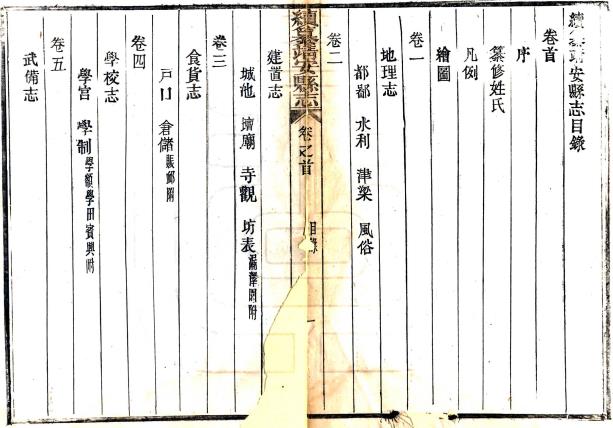 續纂靖安縣志目錄
卷首
序
纂修姓氏
凡例
繪圖
卷一
地理志
都鄙 水利 津梁 風俗
續纂靖安縣志 卷之首 目錄 一
卷二
建置志
城池 壇廟 寺觀 坊表漏澤園附
卷三
食貨志
戶口 倉儲賑卹附
卷四
學校志
學官 學制學額學田賓興附
卷五
武備志